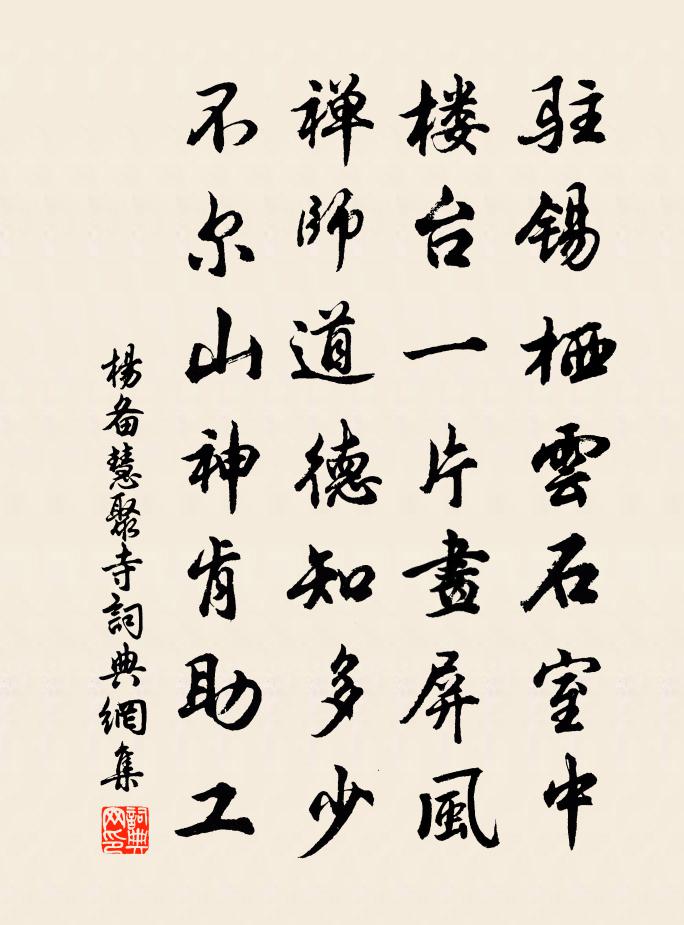 驻锡栖雲石室中
楼台一片畫屏風
禅師道德知多少
不尔山神肯助工
楊备慧聚寺詞典網集
詞典
网印